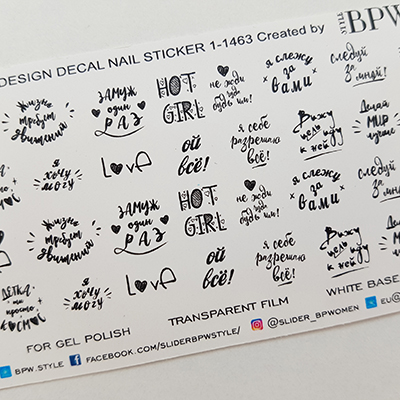 DESIGN DECAL NAIL STICKER 1-1463 Created by
STYLE BPW
Жизнь
требует
движения
ЗАМУЖ
один
РАЗ
HOT
GIRL
не жди
чуда
будь им!
я слежу
за
вами
следуй
за мной!
я
хочу
могу
LovE
ой
всё!
я себе
разрешаю
всё!
Вижу
цель иду
к ней
Делая
МИР
лучше
Жизнь
требует
движения
ЗАМУЖ
один
РАЗ
HOT
GIRL
не жди
чуда
будь им!
я слежу
за
вами
следуй
за мной!
ДЕТКА
ты
просто
КОСМОС
я
хочу
могу
LovE
ой
всё!
я себе
разрешаю
всё!
Вижу
цель иду
к ней
FOR GEL POLISH TRANSPARENT FILM WHITE BASE
BPW.STYLE FACEBOOK.COM/SLIDERBPWSTYLE/ @SLIDER_BPWOMEN EU@